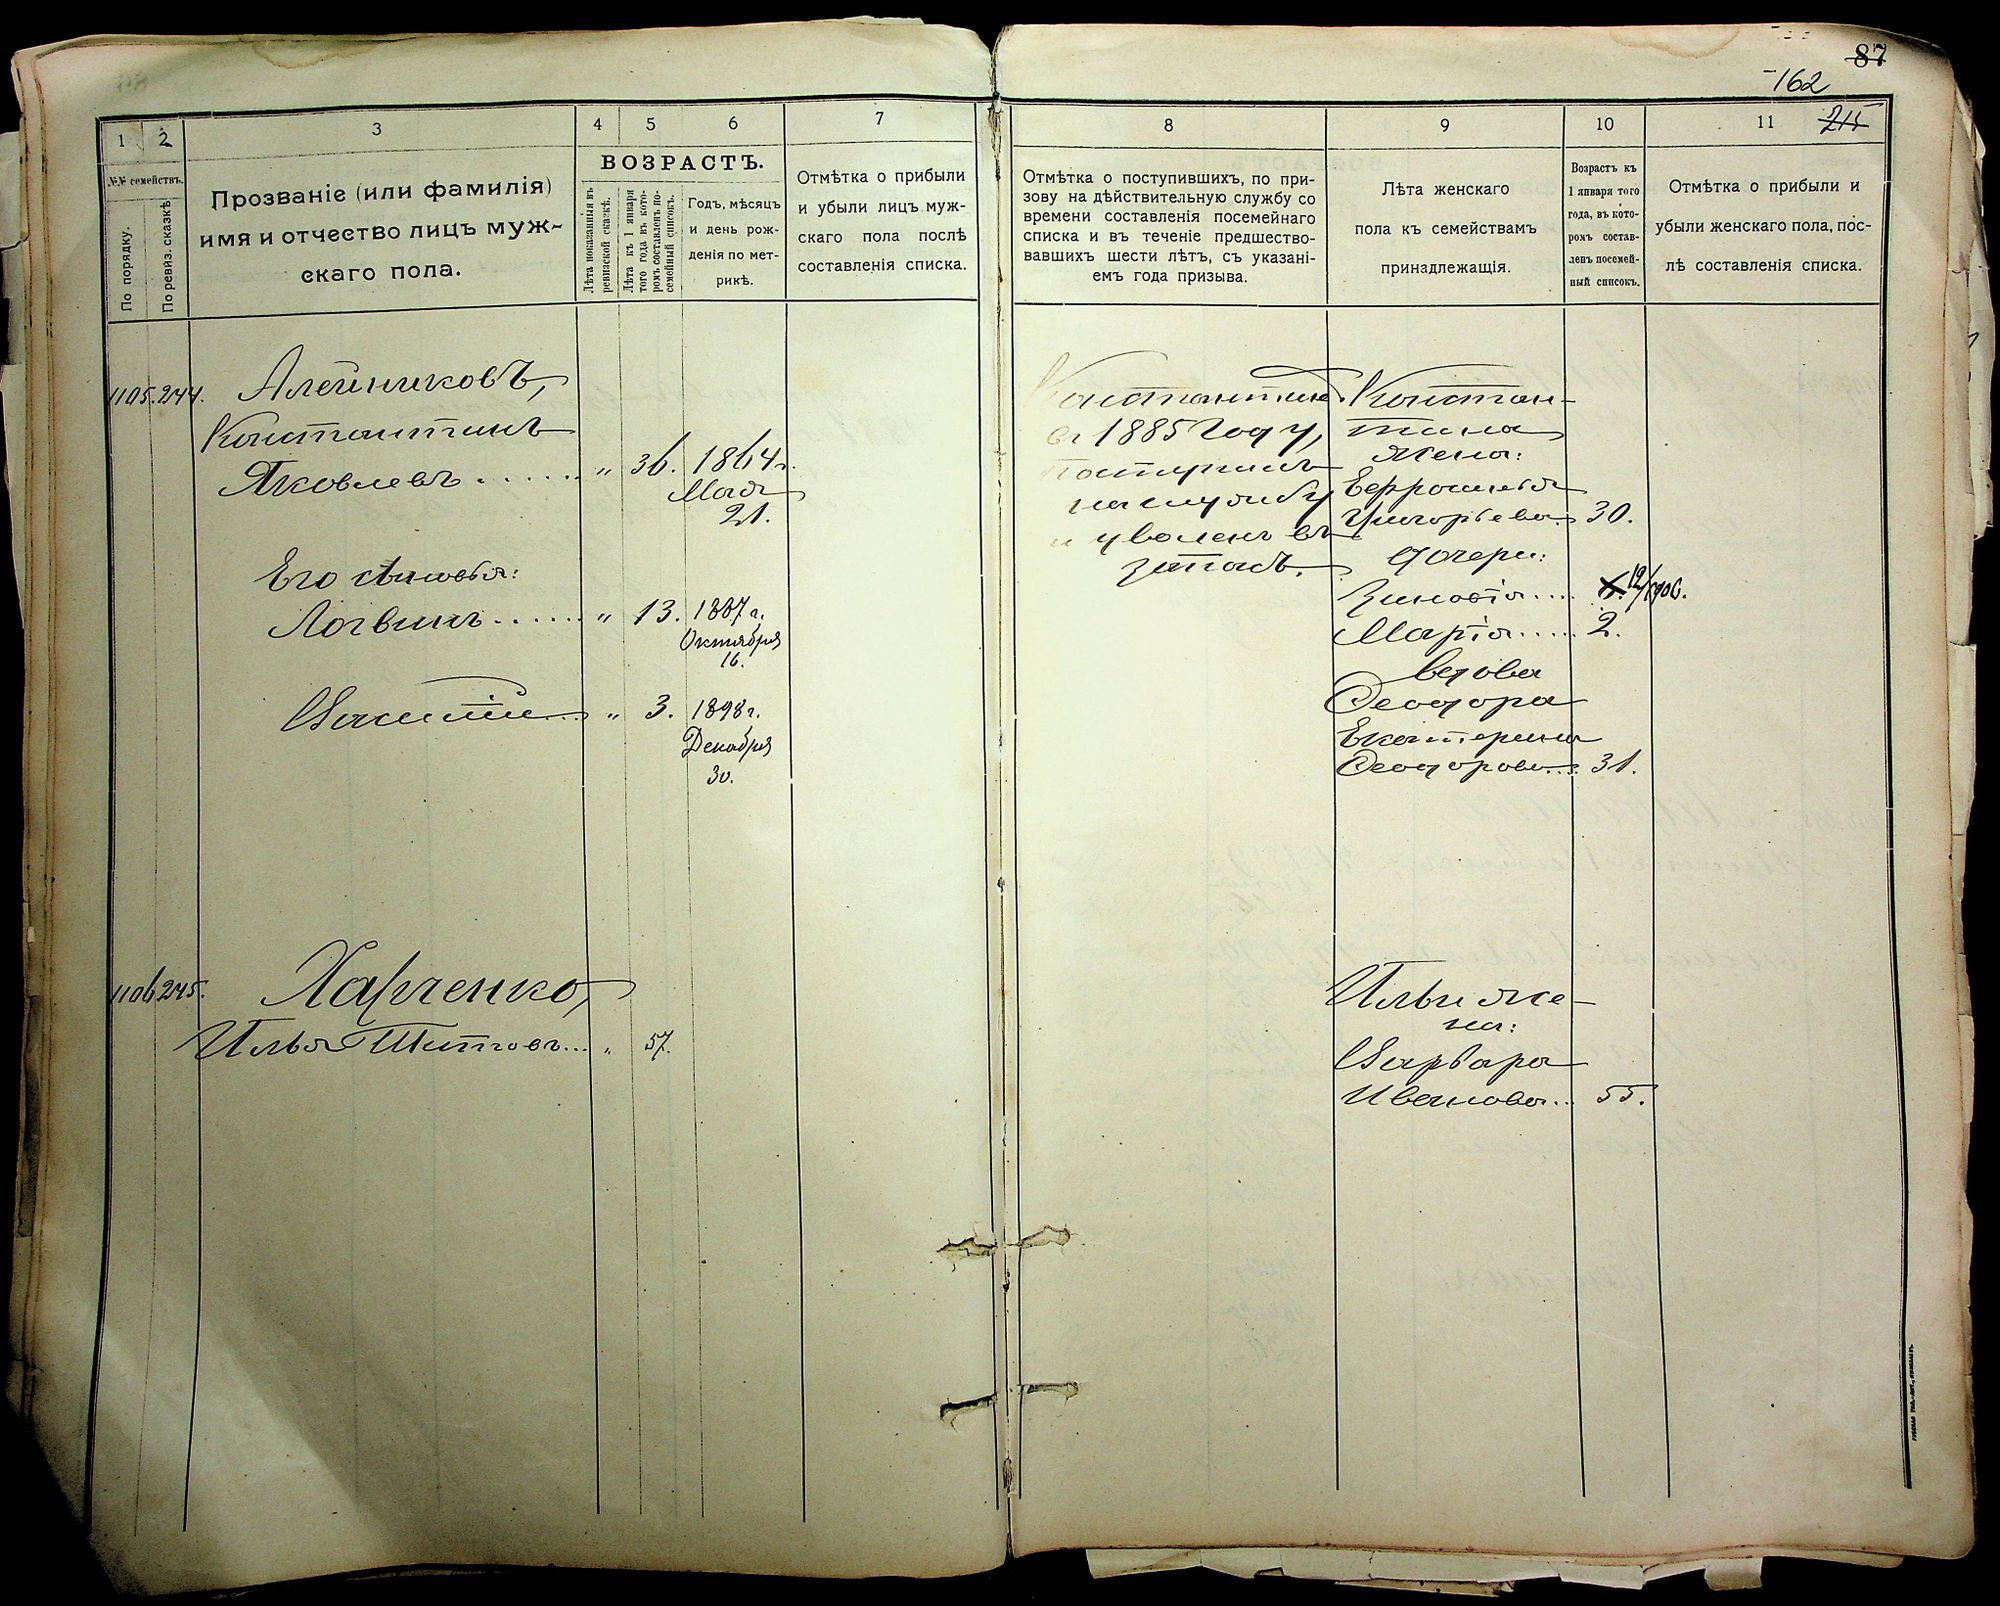 87
162
215
1
2
3
4
5
6
7
№№ семействъ.
По порядку.
По ревиз. сказкѣ
Прозваніе (или фамилія)
имя и отчество лицъ муж-
скаго пола.
ВОЗРАСТЪ.
Лѣта показанія въ
ревизской сказкѣ.
Лѣта къ 1 января
того года въ кото-
ромъ составленъ по-
семейный списокъ.
Годъ, мѣсяцъ
и день рож-
денія по мет-
рикѣ.
Отмѣтка о прибыли
и убыли лицъ муж-
скаго пола послѣ
составленія списка.
1105. 244. Алейниковъ,
Константинъ
Яковлевъ ...... " 36. 1864 г.
Мая
21.
Его сыновья:
Логвинъ ...... " 13. 1887 г.
Октября
16.
Василій... " 3. 1898 г.
Декабря
30.
1106 245. Харченко,
Илья Титовъ... " 57.
8
9
10
11
Отмѣтка о поступившихъ, по при-
зову на дѣйствительную службу со
времени составленія посемейнаго
списка и въ теченіе предшество-
вавшихъ шести лѣтъ, съ указані-
емъ года призыва.
Лѣта женскаго
пола къ семействамъ
принадлежащія.
Возрастъ къ
1 января того
года, въ кото-
ромъ состав-
ленъ посемей-
ный списокъ.
Отмѣтка о прибыли и
убыли женскаго пола, пос-
лѣ составленія списка.
Константинъ
въ 1885 году,
поступилъ
на службу
и уволенъ въ
запасъ.
Констан-
тина
жена:
Евфросинья
Григорьева. 30.
дочери:
Зиновія.... 12/1906.
Марія..... 2.
вдова
Феодора
Екатерина
Феодорова.... 31.
Ильи же-
на:
Варвара
Иванова... 55.